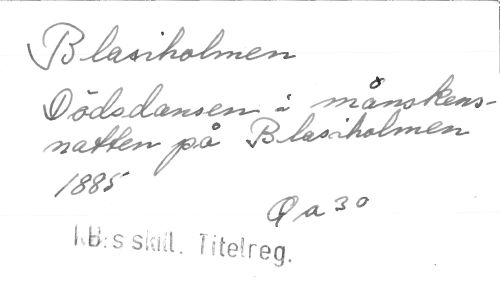 Blasiholmen
Dödsdansen i månskens-
natten på Blasiholmen
1885
Qa 30
KB:s skill. Titelreg.